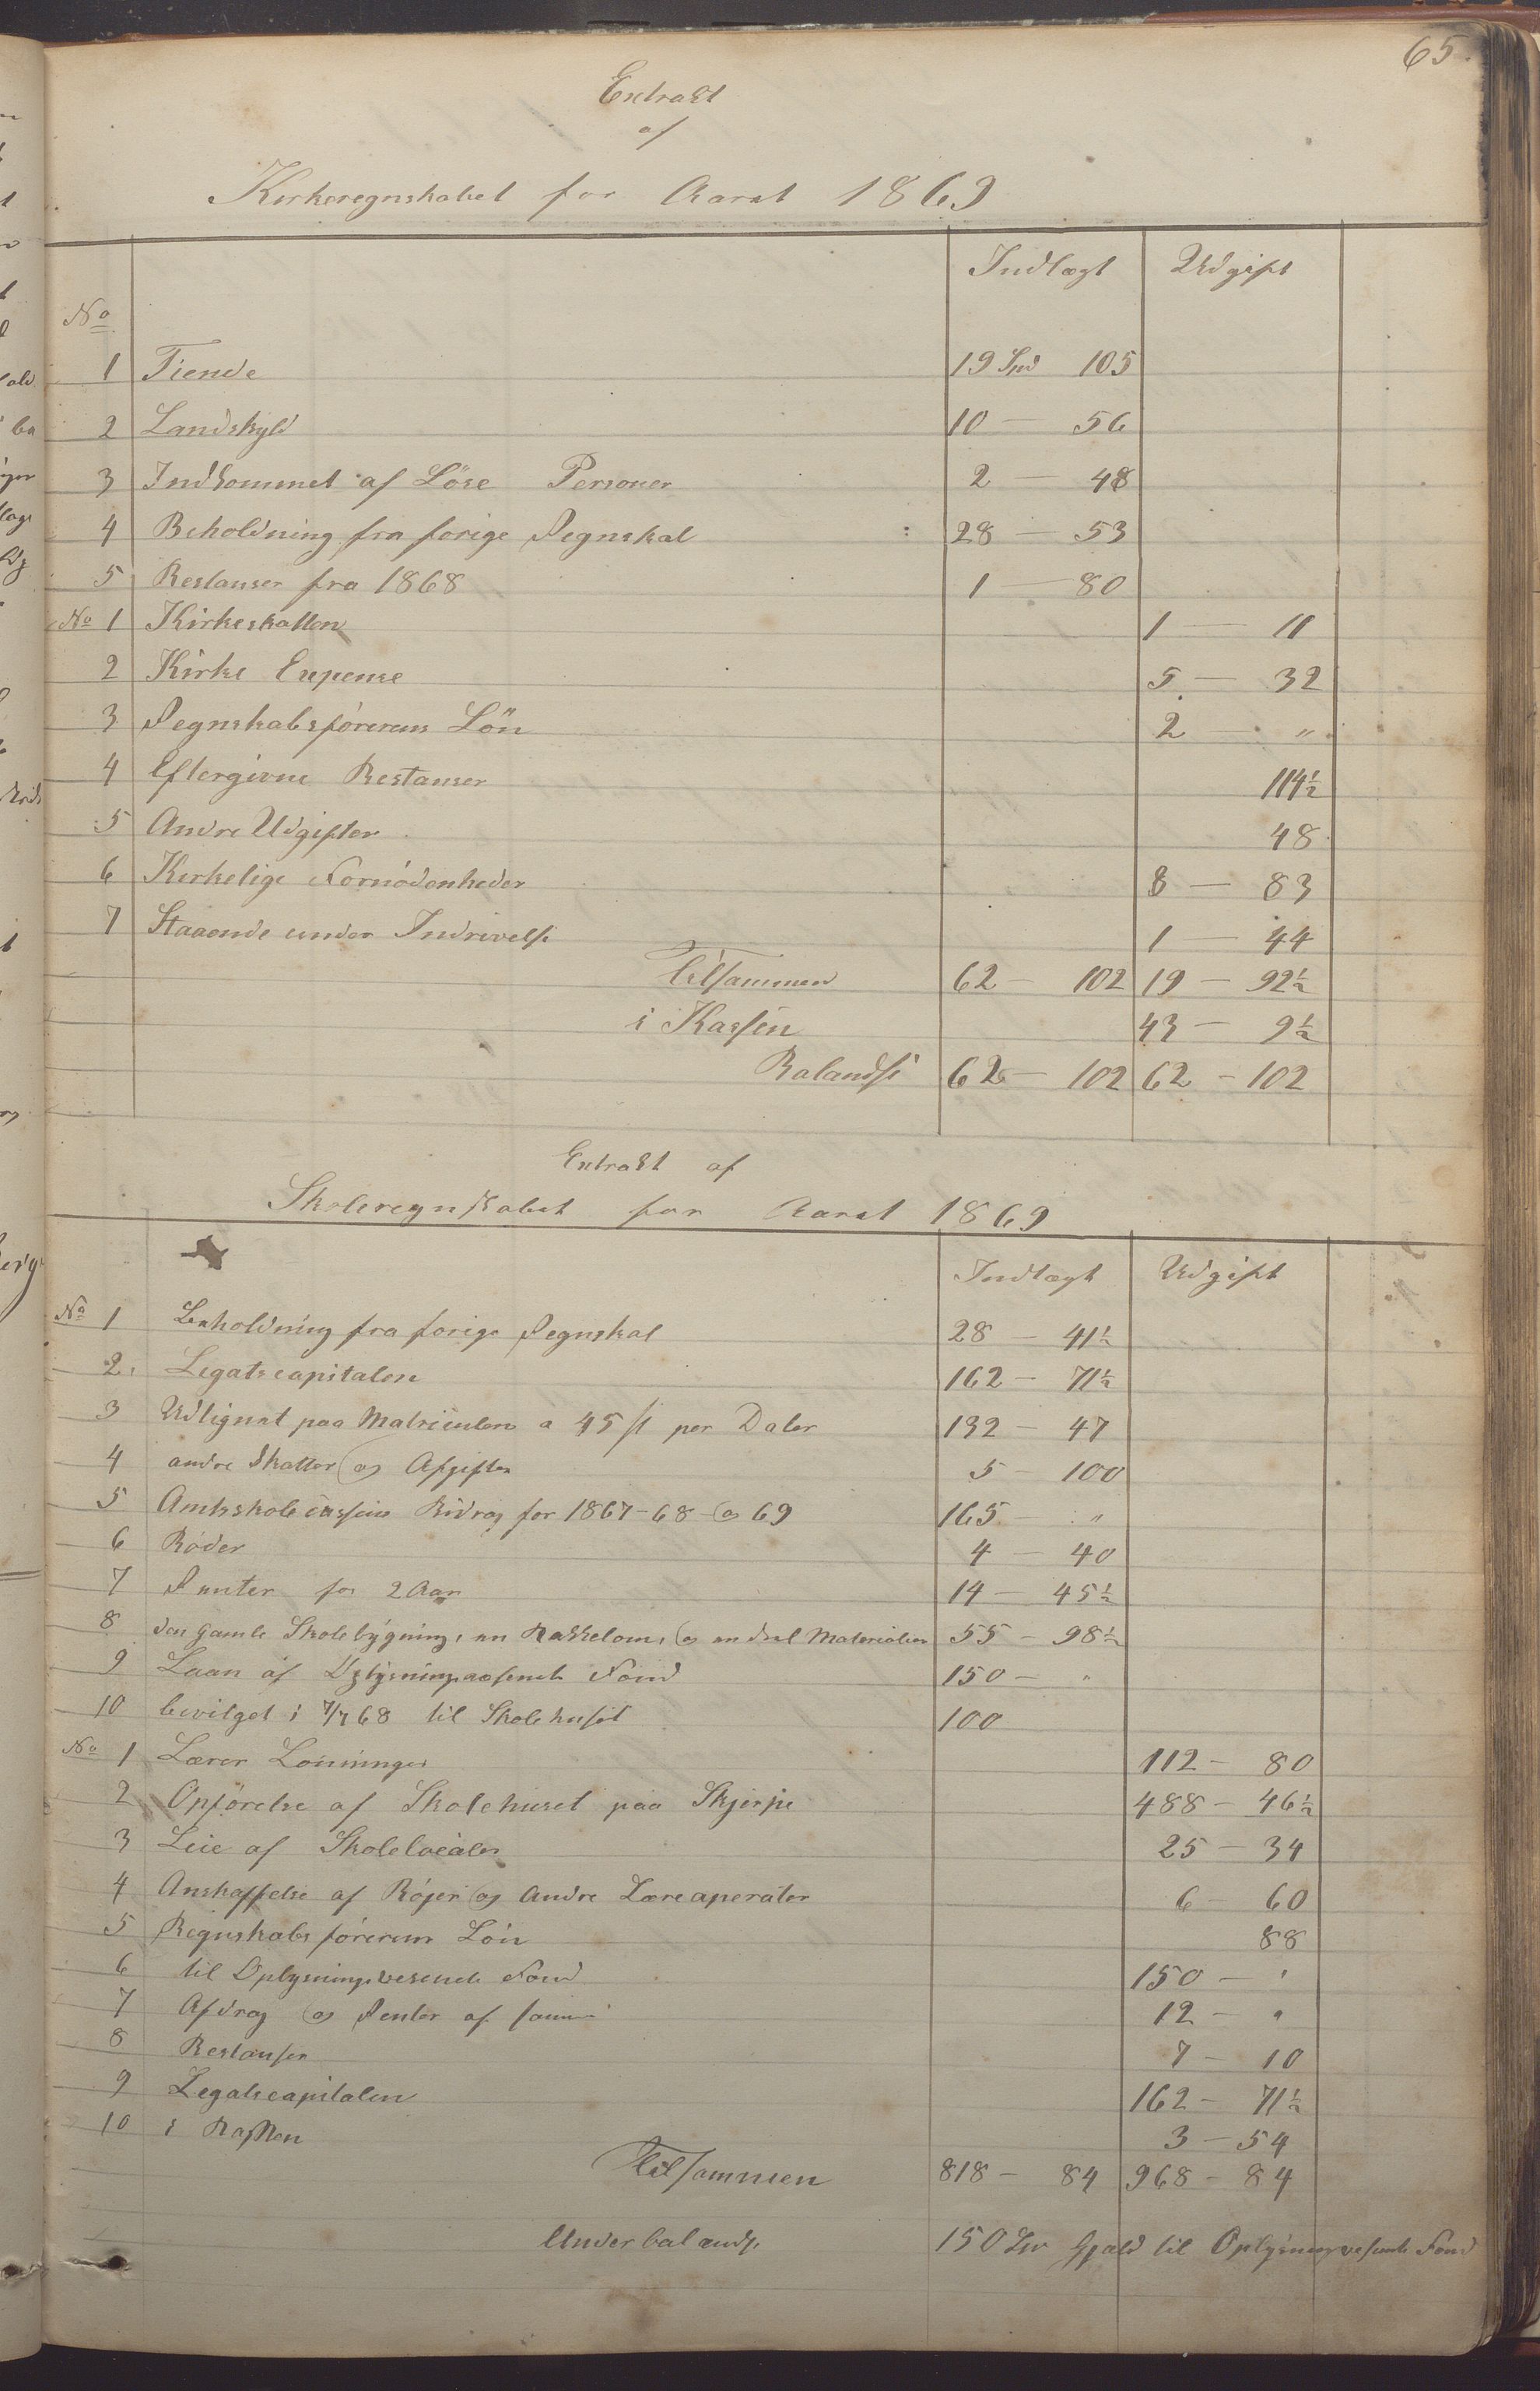 65.
Extrakt
af
Kirkeregnskabet for Aaret 1869
Indtægt Udgift
No
1 Tiende 19 Spd 105
2 Landskyld 10 — 56
3 Indkommet af Löse Personer 2 — 48
4 Beholdning fra forige Regnskab 28 — 53
5 Restanser fra 1868 1 — 80
No 1 Kirkeskatten 1 — 11
2 Kirke Expense 5 — 32
3 Regnskabsförerens Lön 2 — "
4 Eftergivne Restanser 114½
5 Andre Udgifter 48
6 Kirkelige Fornödenheder 8 — 83
7 Staaende under Indrivelse 1 — 44
Tilsammen 62 — 102 19 — 92½
i Kassen 43 — 9½
Balandse 62 — 102 62 — 102
Extrakt af
Skoleregnskabet for Aaret 1869
Indtægt Udgift
No 1 Beholdning fra forige Regnskab 28 — 41½
2 Legatscapitalen 162 — 71½
3 Udlignet paa Matriculen a 45 /s per Daler 132 — 47
4 andre Skatter og Afgifter 5 — 100
5 Amtsskolecassens Bidrag for 1867-68 og 69 165 — "
6 Böder 4 — 40
7 Renter for 2 Aar 14 — 45½
8 den gamle Skolebygning, en Kakkelovn, og en deel Materialier 55 — 98½
9 Laan af Oplysningsvæsenets Fond 150 — "
10 bevilget i 7/7 68 til Skolehuset 100
No 1 Lærer Lönninger 112 — 80
2 Opförelse af Skolehuset paa Skjerpe 488 — 46½
3 Leie af Skolelocaler 25 — 34
4 Anskaffelse af Böger og Andre Læreaperater 6 — 60
5 Regnskabsförerens Lön 88
6 til Oplysningsvesenets Fond 150 — "
7 Afdrag og Renter af samme 12 — "
8 Restanser 7 — 10
9 Legatscapitalen 162 — 71½
10 i Kassen 3 — 54
Tilsammen 818 — 84 968 — 84
Underbalandse 150 Spd Gjæld til Oplysningsvesenets Fond